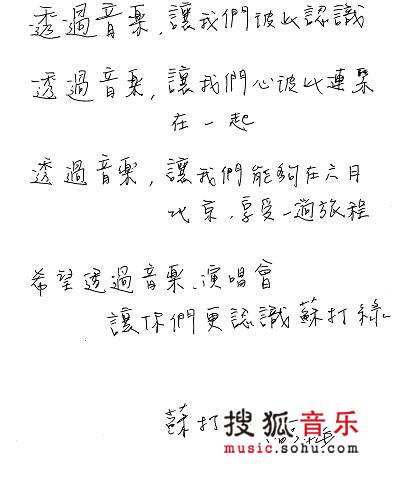 透過音樂,讓我們彼此認識
透過音樂,讓我們心彼此連繫
在一起
透過音樂,讓我們能夠在六月
北京,享受一趟旅程
希望透過音樂、演唱會
讓你們更認識蘇打綠。
蘇打
搜狐音乐
music.sohu.com